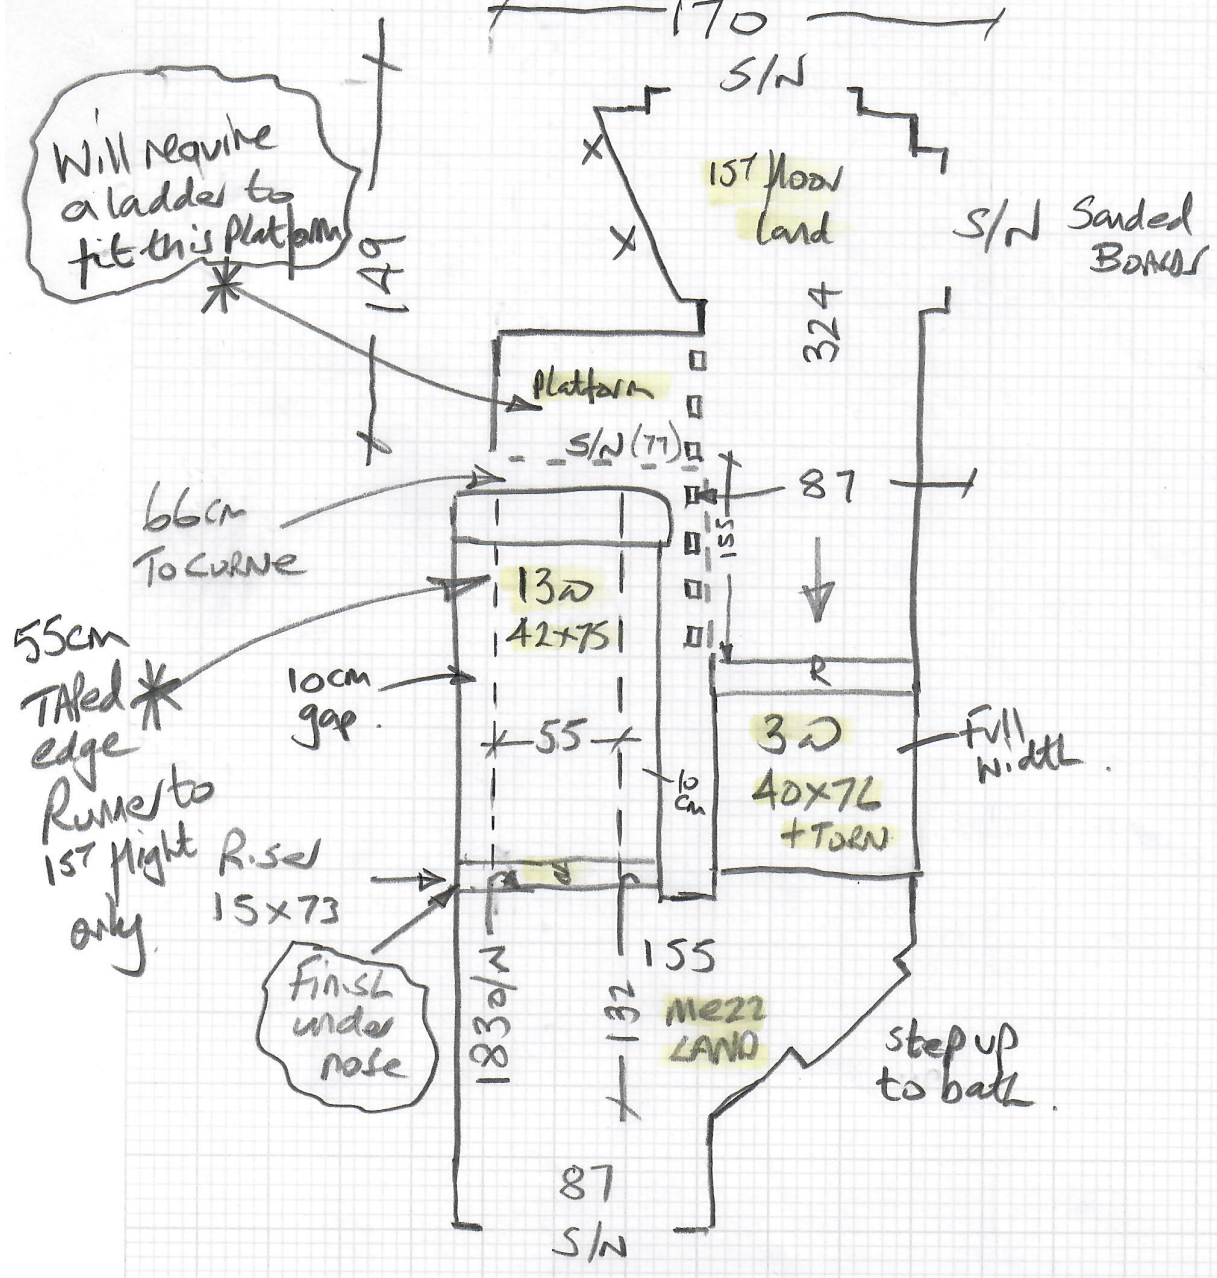 170
S/N
Will require
a ladder to
fit this platform
149
1ST floor
Land
S/N Sanded
BOARDS
324
Platform
S/N (77)
87
155
66cm
TO CURNE
13W
42x75
55cm
TAPed
edge
Runner to
1ST flight
only.
10cm
gap.
55
10
cm
R
3W
40x76
+TURN
Full
width.
Riser
15x73
Finish
under
nose
183 O/N
132
155
MEZZ
LAND
step up
to bath.
87
S/N